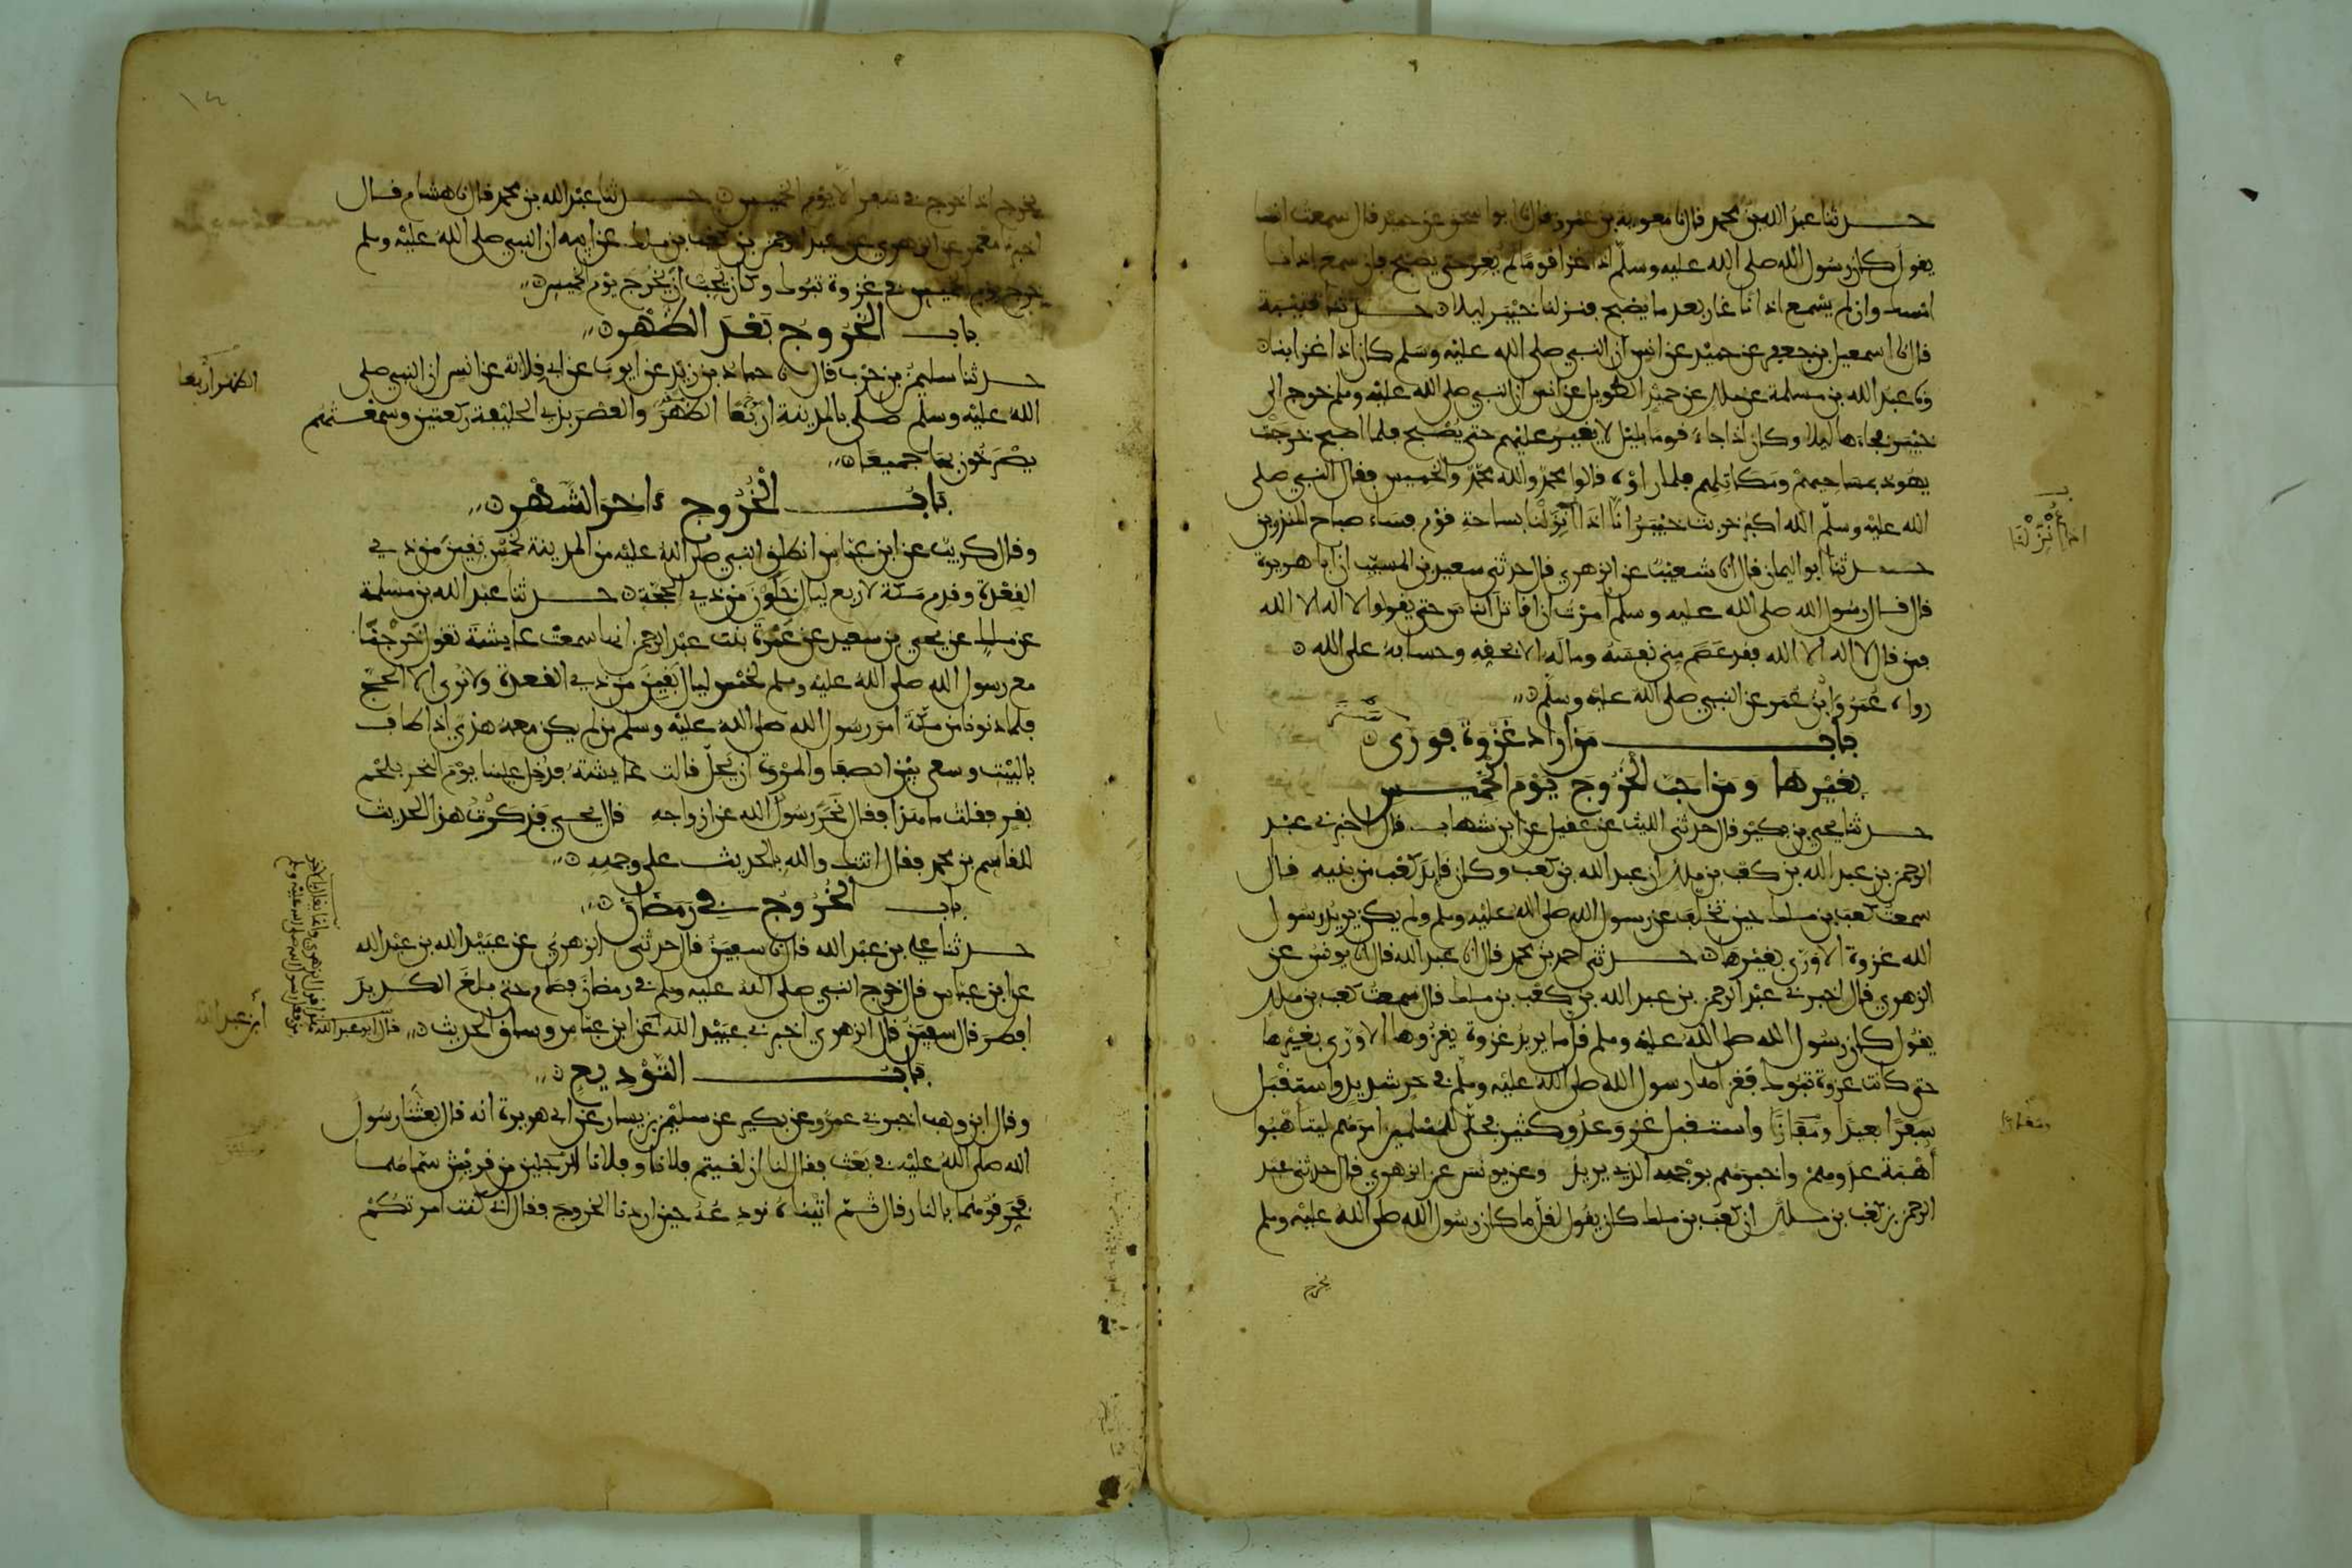 حدثنا عبد الله بن محمد قال نا معوية بن عمرو قال نا ابو اسحق عن حميد قال سمعت انسا
يقول كان رسول الله صلى الله عليه وسلم اذا غزا قوما لم يغر حتى يصبح فان سمع اذانا
امسك وان لم يسمع اذانا غار بعد ما يصبح فنزلنا خيبر ليلا حدثنا قتيبة
قال نا اسمعيل بن جعفر عن حميد عن انس ان النبي صلى الله عليه وسلم كان اذا غزا بنا
ونا عبد الله بن مسلمة عن ملك عن حميد الطويل عن انس ان النبي صلى الله عليه وسلم خرج الى
خيبر فجاءها ليلا وكان اذا جاء قوما بليل لا يغير عليهم حتى يصبح فلما اصبح خرجت
يهود بمساحيهم ومكاتلهم فلما راوه قالوا محمد والله محمد والخميس فقال النبي صلى
الله عليه وسلم الله اكبر خربت خيبر انا اذا نزلنا بساحة قوم فساء صباح المنذرين
حدثنا ابو اليمان قال انا شعيب عن الزهري قال حدثني سعيد بن المسيب ان ابا هريرة
قال قال رسول الله صلى الله عليه وسلم امرت ان اقاتل الناس حتى يقولوا لا اله الا الله
فمن قال لا اله الا الله فقد عصم مني نفسه وماله الا بحقه وحسابه على الله
رواه عمر وابن عمر عن النبي صلى الله عليه وسلم
باب من اراد غزوة فورى
بغيرها ومن احب الخروج يوم الخميس
حدثنا يحيى بن بكير قال حدثني الليث عن عقيل عن ابن شهاب قال اخبرني عبد
الرحمن بن عبد الله بن كعب بن ملك ان عبد الله بن كعب وكان قايد كعب من بنيه قال
سمعت كعب بن ملك حين تخلف عن رسول الله صلى الله عليه وسلم ولم يكن يريد رسول
الله غزوة الا ورى بغيرها حدثني احمد بن محمد قال انا عبد الله قال انا يونس عن
الزهري قال اخبرني عبد الرحمن بن عبد الله بن كعب بن ملك قال سمعت كعب بن ملك
يقول كان رسول الله صلى الله عليه وسلم قل ما يريد غزوة يغزوها الا ورى بغيرها
حتى كانت غزوة تبوك فغزاها رسول الله صلى الله عليه وسلم في حر شديد واستقبل
سفرا بعيدا ومفازا واستقبل غزو عدو كثير فجلى للمسلمين امرهم ليتاهبوا
اهبة عدوهم واخبرهم بوجهه الذي يريد وعن يونس عن الزهري قال حدثني عبد
الرحمن بن كعب بن ملك ان كعب بن ملك كان يقول لقل ما كان رسول الله صلى الله عليه وسلم
يخرج
يخرج اذا خرج في سفر الا يوم الخميس حدثنا عبد الله بن محمد قال نا هشام قال
اخبرنا معمر عن الزهري عن عبد الرحمن بن كعب بن ملك عن ابيه ان النبي صلى الله عليه وسلم
خرج يوم الخميس في غزوة تبوك وكان يحب ان يخرج يوم الخميس
باب الخروج بعد الظهر
حدثنا سليمن بن حرب قال نا حماد بن زيد عن ايوب عن ابي قلابة عن انس ان النبي صلى
الله عليه وسلم صلى بالمدينة اربعا الظهر والعصر بذي الحليفة ركعتين وسمعتهم
يصرخون بهما جميعا
الظهر اربعا
باب الخروج ءاخر الشهر
وقال كريب عن ابن عباس انطلق النبي صلى الله عليه من المدينة لخمس بقين من ذي
القعدة وقدم مكة لاربع ليال خلون من ذي الحجة حدثنا عبد الله بن مسلمة
عن ملك عن يحيى بن سعيد عن عمرة بنت عبد الرحمن انها سمعت عايشة تقول خرجنا
مع رسول الله صلى الله عليه وسلم لخمس ليال بقين من ذي القعدة ولا نرى الا الحج
فلما دنونا من مكة امر رسول الله صلى الله عليه وسلم من لم يكن معه هدي اذا طاف
بالبيت وسعى بين الصفا والمروة ان يحل قالت عايشة فدخل علينا يوم النحر بلحم
بقر فقلت ما هذا فقال نحر رسول الله عن ازواجه قال يحيى فذكرت هذا الحديث
للقاسم بن محمد فقال اتتك والله بالحديث على وجهه
باب الخروج في رمضان
حدثنا علي بن عبد الله قال نا سفين قال حدثني الزهري عن عبيد الله بن عبد الله
عن ابن عباس قال خرج النبي صلى الله عليه وسلم في رمضان فصام حتى بلغ الكديد
افطر قال سفين قال الزهري اخبرني عبيد الله عن ابن عباس وساق الحديث
قال ابو عبد الله
هذا قول الزهري وانما يقال بالاخر
من فعل رسول الله صلى الله عليه وسلم
باب التوديع
وقال ابن وهب اخبرني عمرو عن بكير عن سليمن بن يسار عن ابي هريرة انه قال بعثنا رسول
الله صلى الله عليه في بعث فقال لنا ان لقيتم فلانا وفلانا لرجلين من قريش سماهما
فحرقوهما بالنار قال ثم اتيناه نودعه حين اردنا الخروج فقال اني كنت امرتكم